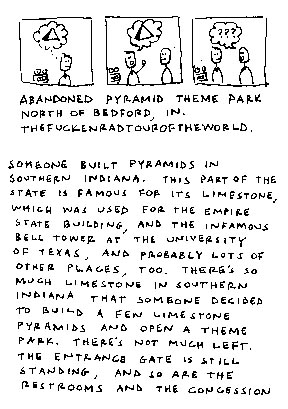 ???
ABANDONED PYRAMID THEME PARK
NORTH OF BEDFORD, IN.
THEFUCKENRADTOUROFTHEWORLD.
SOMEONE BUILT PYRAMIDS IN
SOUTHERN INDIANA. THIS PART OF THE
STATE IS FAMOUS FOR ITS LIMESTONE,
WHICH WAS USED FOR THE EMPIRE
STATE BUILDING, AND THE INFAMOUS
BELL TOWER AT THE UNIVERSITY
OF TEXAS, AND PROBABLY LOTS OF
OTHER PLACES, TOO. THERE'S SO
MUCH LIMESTONE IN SOUTHERN
INDIANA THAT SOMEONE DECIDED
TO BUILD A FEW LIMESTONE
PYRAMIDS AND OPEN A THEME
PARK. THERE'S NOT MUCH LEFT.
THE ENTRANCE GATE IS STILL
STANDING, AND SO ARE THE
RESTROOMS AND THE CONCESSION